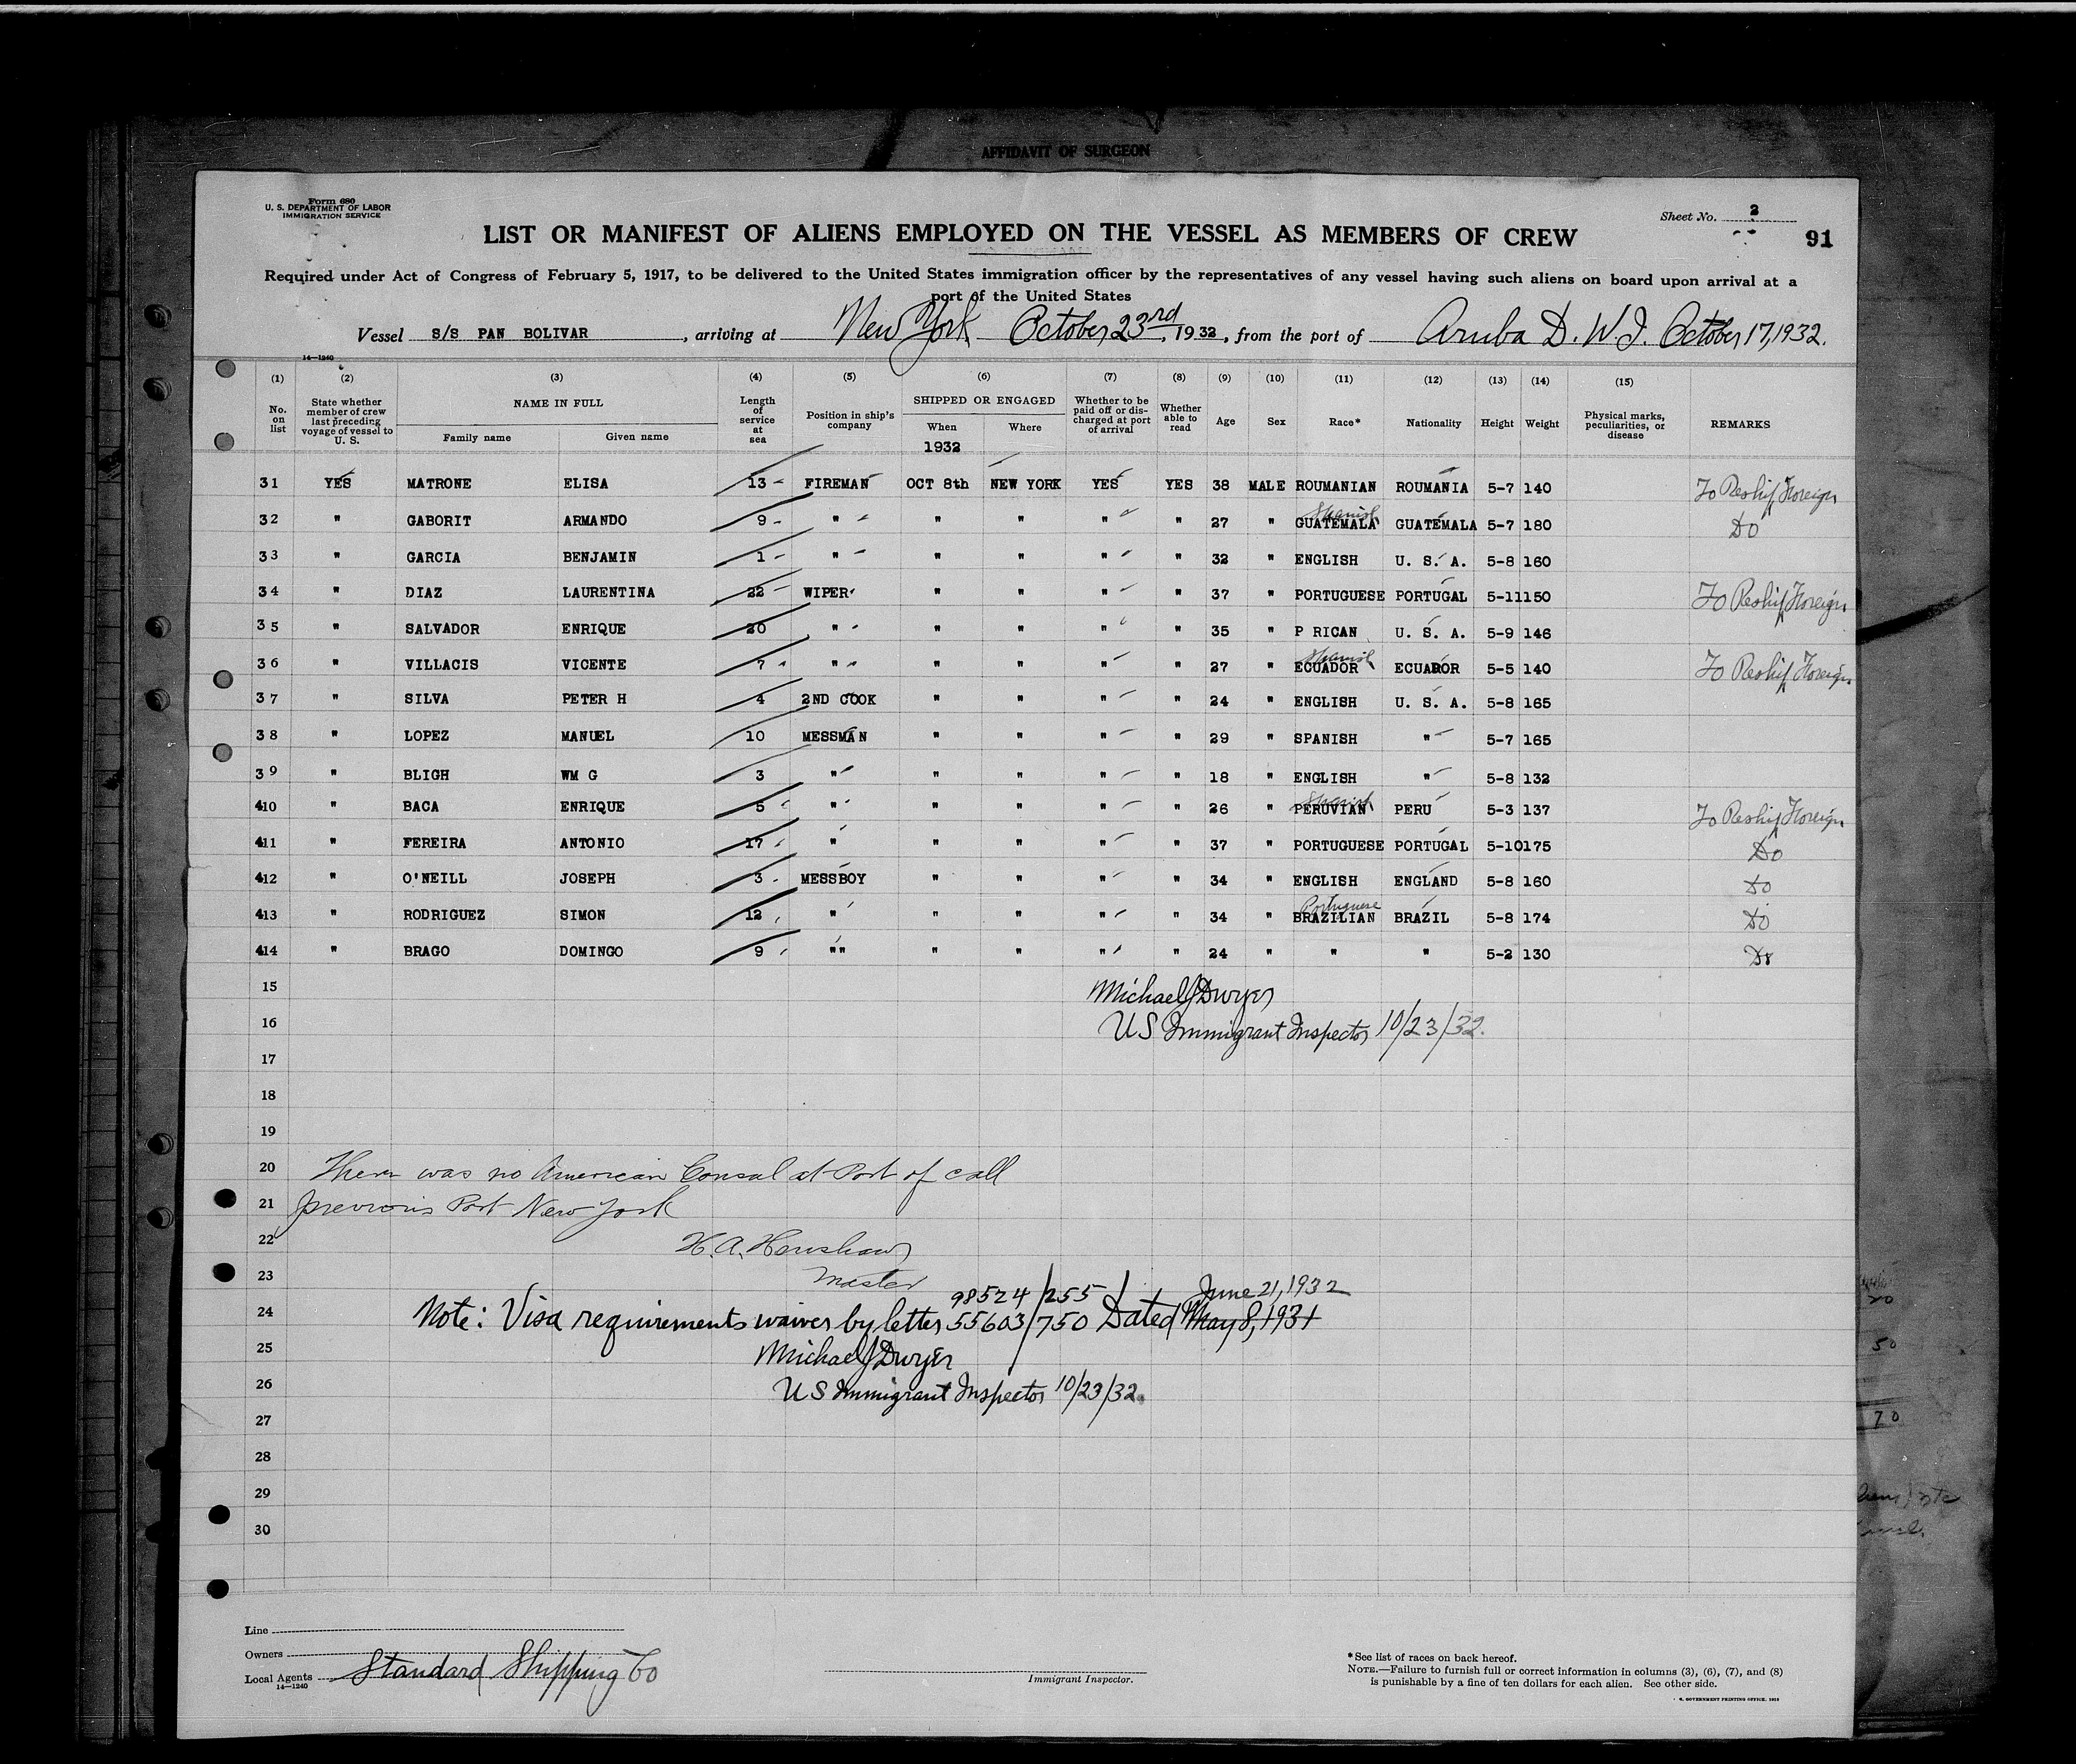 AFFIDAVIT OF SURGEON
Form 680
U. S. DEPARTMENT OF LABOR
IMMIGRATION SERVICE
Sheet No. 2
91
LIST OR MANIFEST OF ALIENS EMPLOYED ON THE VESSEL AS MEMBERS OF CREW
Required under Act of Congress of February 5, 1917, to be delivered to the United States immigration officer by the representatives of any vessel having such aliens on board upon arrival at a
port of the United States
Vessel S/S PAN BOLIVAR, arriving at New York October 23rd, 1932, from the port of Aruba D. W. I. October 17, 1932.
14—1240
(1) (2) (3) (4) (5) (6) (7) (8) (9) (10) (11) (12) (13) (14) (15)
No. on list State whether member of crew last preceding voyage of vessel to U. S. NAME IN FULL Family name Given name Length of service at sea Position in ship's company SHIPPED OR ENGAGED When Where Whether to be paid off or discharged at port of arrival Whether able to read Age Sex Race* Nationality Height Weight Physical marks, peculiarities, or disease REMARKS
1932
31 YES MATRONE ELISA 13 FIREMAN OCT 8th NEW YORK YES YES 38 MALE ROUMANIAN ROUMANIA 5-7 140 To Reship Foreign
32 " GABORIT ARMANDO 9 " " " " " 27 " GUATEMALA Spanish GUATEMALA 5-7 180 DO
33 " GARCIA BENJAMIN 1 " " " " " 32 " ENGLISH U. S. A. 5-8 160
34 " DIAZ LAURENTINA 22 WIPER " " " " 37 " PORTUGUESE PORTUGAL 5-11 150 To Reship Foreign
35 " SALVADOR ENRIQUE 20 " " " " " 35 " P RICAN U. S. A. 5-9 146
36 " VILLACIS VICENTE 7 " " " " " 27 " ECUADOR Spanish ECUADOR 5-5 140 To Reship Foreign
37 " SILVA PETER H 4 2ND COOK " " " " 24 " ENGLISH U. S. A. 5-8 165
38 " LOPEZ MANUEL 10 MESSMAN " " " " 29 " SPANISH " 5-7 165
39 " BLIGH WM G 3 " " " " " 18 " ENGLISH " 5-8 132
410 " BACA ENRIQUE 5 " " " " " 26 " PERUVIAN Spanish PERU 5-3 137 To Reship Foreign
411 " FEREIRA ANTONIO 17 " " " " " 37 " PORTUGUESE PORTUGAL 5-10 175 Do
412 " O'NEILL JOSEPH 3 MESSBOY " " " " 34 " ENGLISH ENGLAND 5-8 160 Do
413 " RODRIGUEZ SIMON 12 " " " " " 34 " BRAZILIAN Portuguese BRAZIL 5-8 174 Do
414 " BRAGO DOMINGO 9 "" " " " " 24 " " " 5-2 130 Do
15 Michael J Dwyer
16 US Immigrant Inspector 10/23/32.
17
18
19
20 There was no American Consal at Port of call
21 previous Port New York
22 H. A. Henshaw
23 Master
98524/255 June 21, 1932
24 Note: Visa requirements waiver by letter 55603/750 Dated May 8, 1931
25 Michael J Dwyer
26 US Immigrant Inspector 10/23/32.
27
28
29
30
Line
Owners
Local Agents Standard Shipping Co
14—1240
Immigrant Inspector.
*See list of races on back hereof.
NOTE.—Failure to furnish full or correct information in columns (3), (6), (7), and (8)
is punishable by a fine of ten dollars for each alien. See other side.
50
70